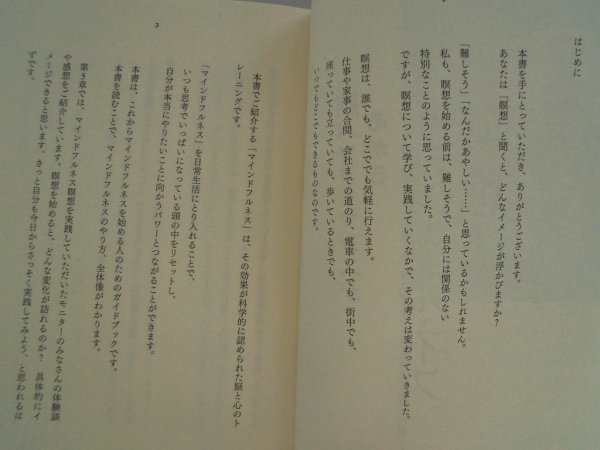 はじめに
本書を手にとっていただき、ありがとうございます。
あなたは「瞑想」と聞くと、どんなイメージが浮かびますか?
「難しそう」「なんだかあやしい……」と思っているかもしれません。
私も、瞑想を始める前は、難しそうで、自分には関係のない
特別なことのように思っていました。
ですが、瞑想について学び、実践していくなかで、その考えは変わっていきました。
瞑想は、誰でも、どこででも気軽に行えます。
仕事や家事の合間、会社までの道のり、電車の中でも、街中でも、
座っていても立っていても、歩いているときでも、
いつでもどこでもできるものなのです。
2
本書でご紹介する「マインドフルネス」は、その効果が科学的に認められた脳と心のト
レーニングです。
「マインドフルネス」を日常生活にとり入れることで、
いつも思考でいっぱいになっている頭の中をリセットし、
自分が本当にやりたいことに向かうパワーとつながることができます。
本書は、これからマインドフルネスを始める人のためのガイドブックです。
本書を読むことで、マインドフルネスのやり方、全体像がわかります。
第5章では、マインドフルネス瞑想を実践していただいたモニターのみなさんの体験談
や感想をご紹介しています。瞑想を始めると、どんな変化が訪れるのか? 具体的にイ
メージできると思います。きっと自分も今日からさっそく実践してみよう、と思われるは
ずです。